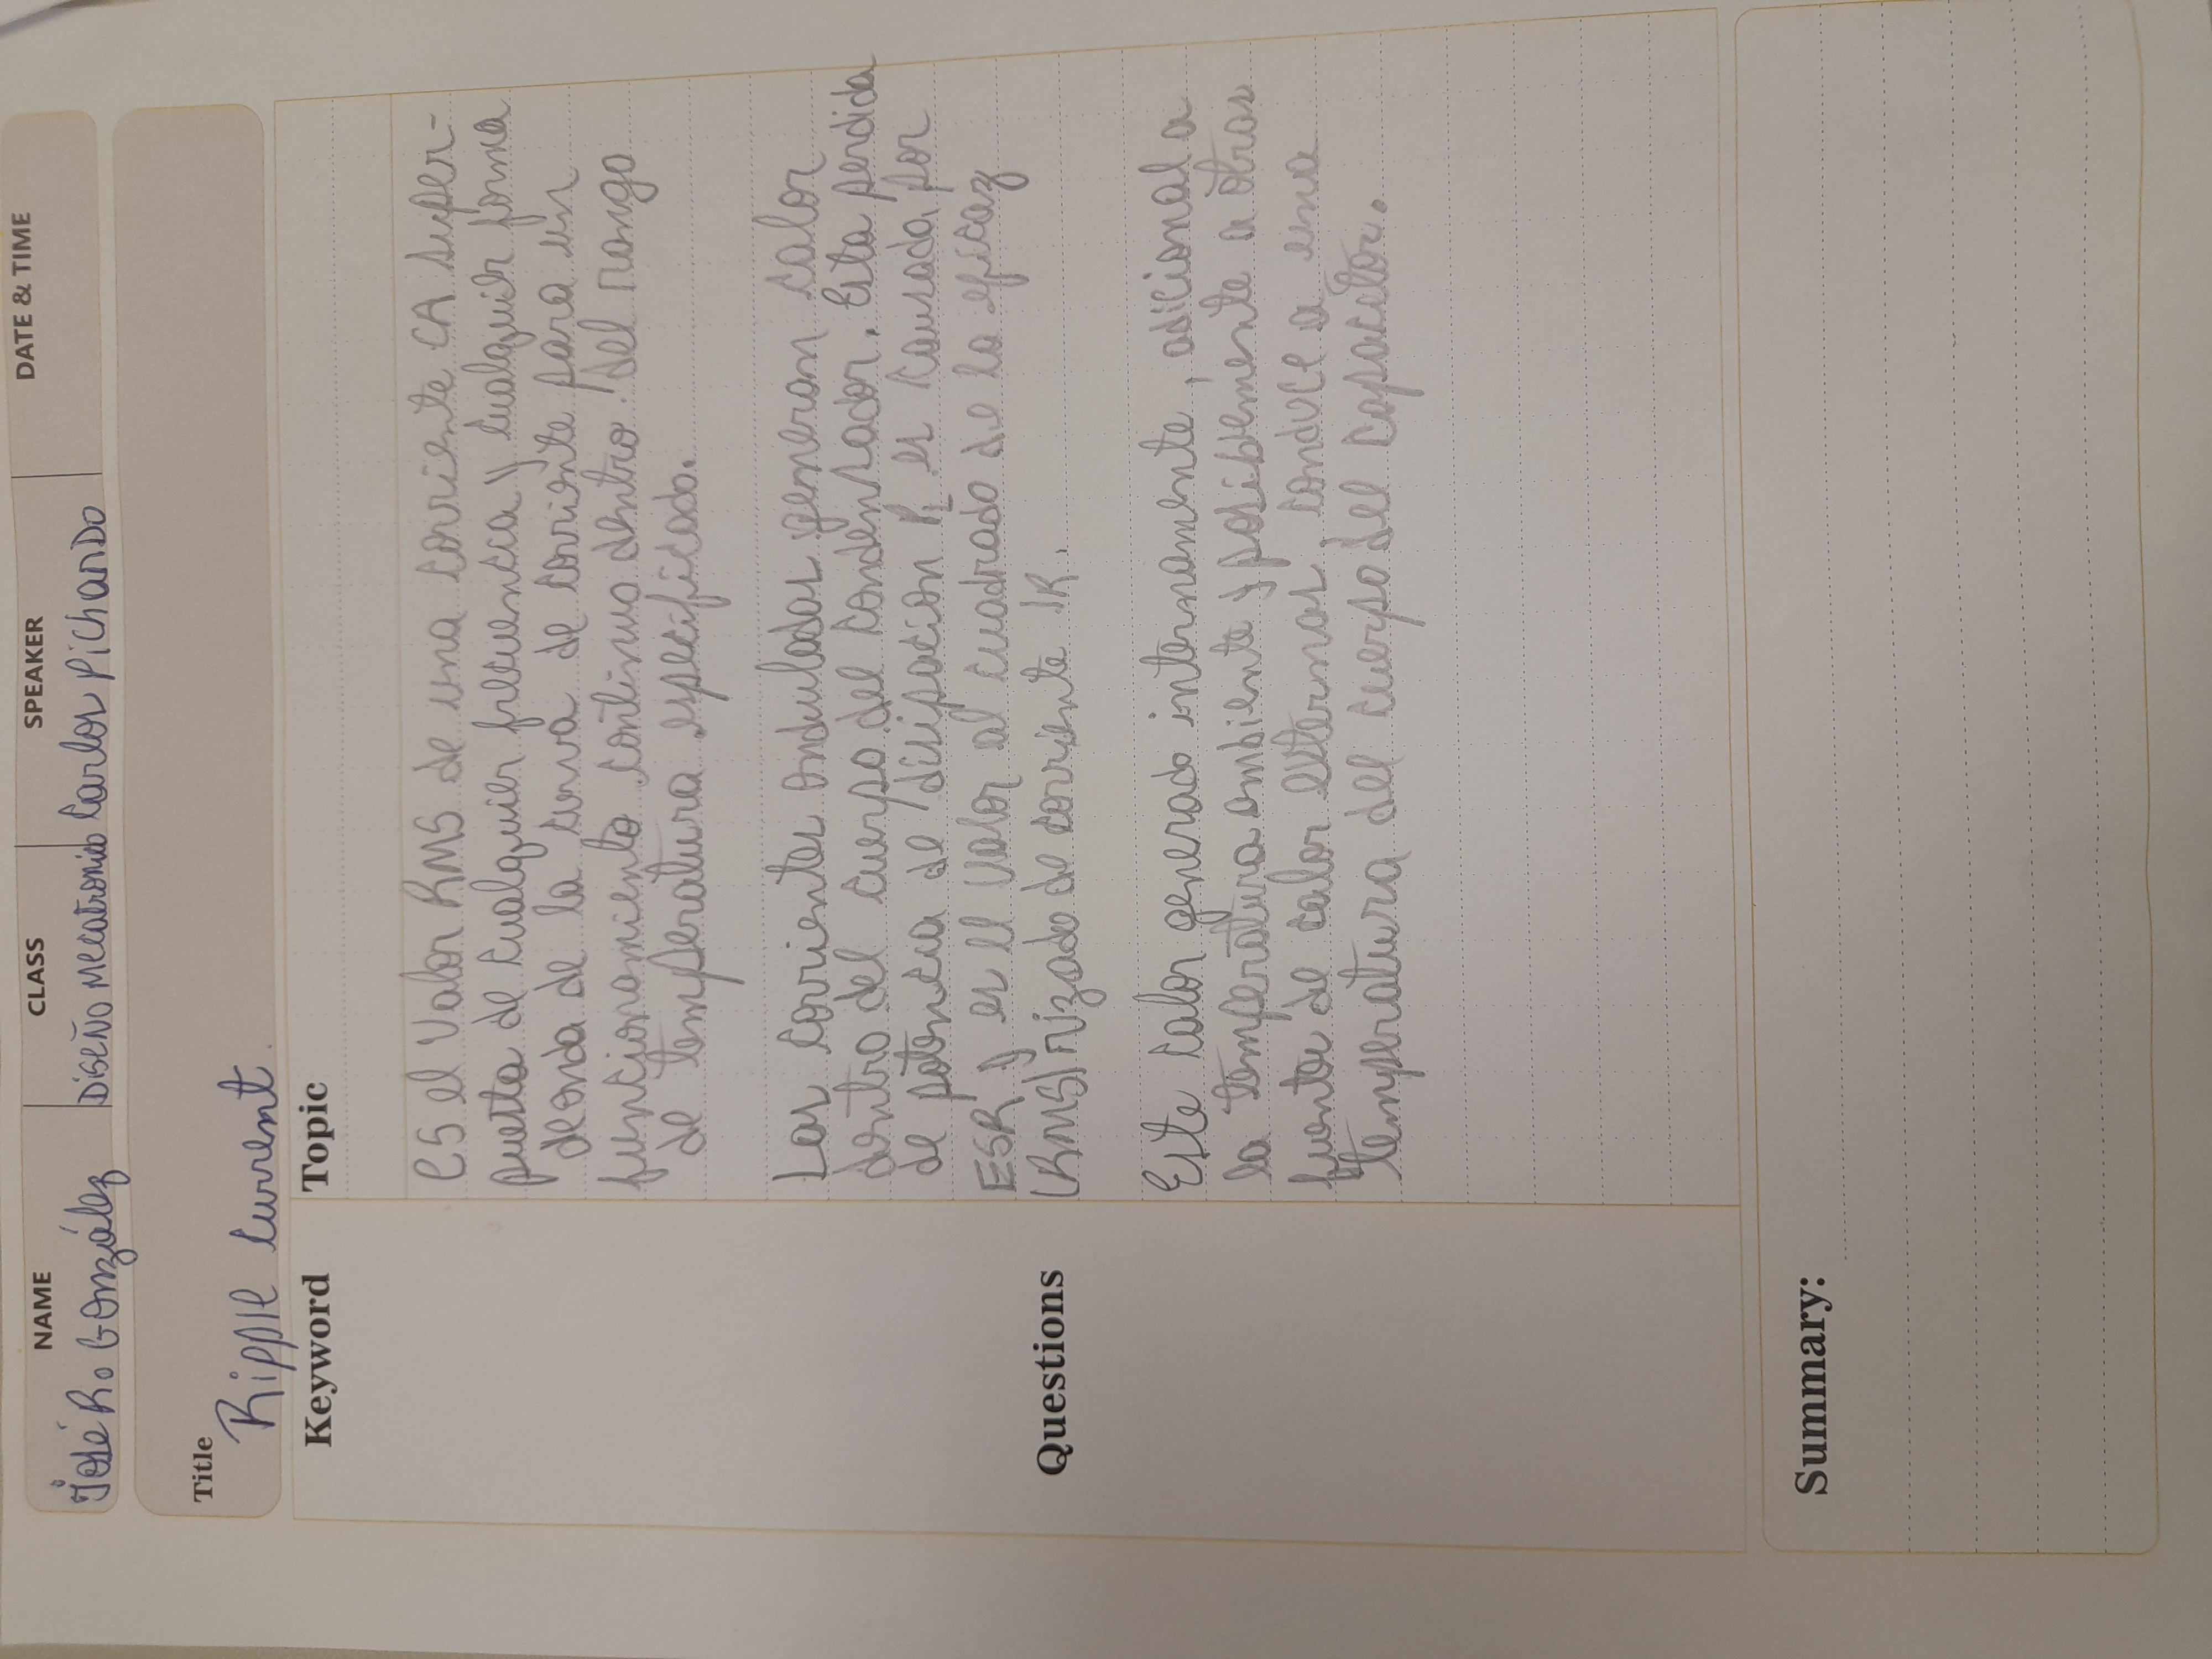 NAME CLASS SPEAKER DATE & TIME
José Ro González Diseño Mecatronico Carlos Pichardo
Title
Ripple current.
Keyword Topic
es el Valor RMS de una corriente CA super-
puesta de cualquier frecuencia y cualquier forma
de onda de la curva de corriente para un
funcionamiento continuo dentro del rango
de temperatura especificado.
Las corrientes onduladas generan calor
dentro del cuerpo del condensador. Esta perdida
de potencia de disipacion PL es causada por
ESR y es el Valor al cuadrado de la eficaz
Questions (RMS) rizado de corriente IR.
Este calor generado internamente, adicional a
la temperatura ambiente y posiblemente a otras
fuentes de calor externas, conduce a una
temperatura del cuerpo del capacitor.
Summary: